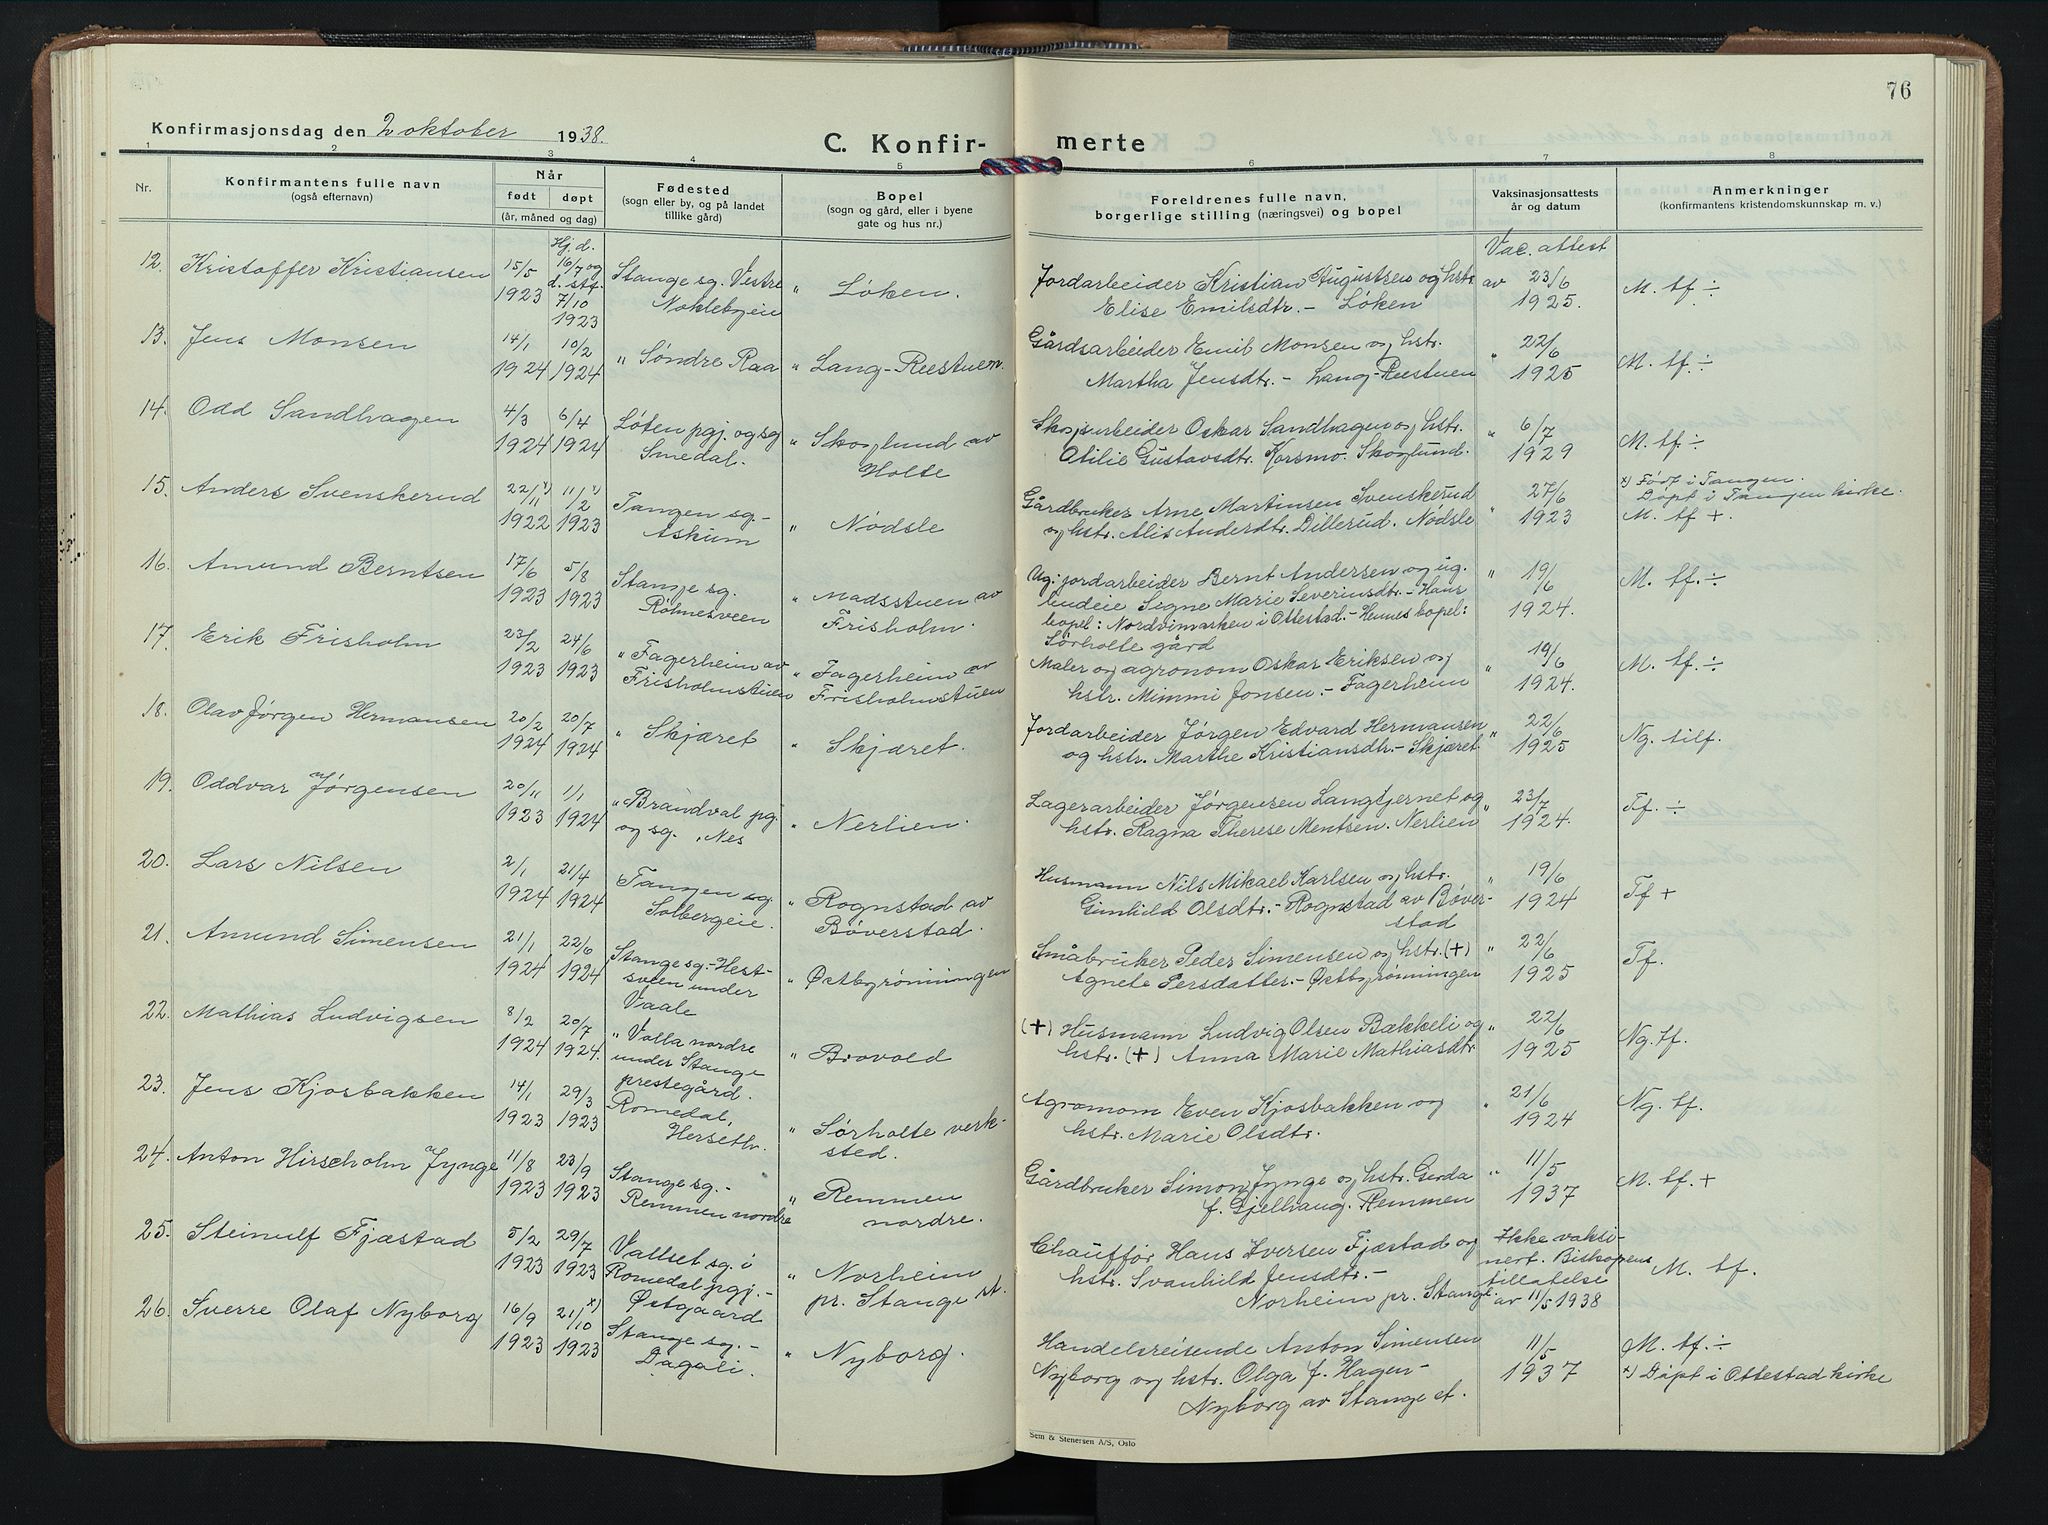 76
Konfirmasjonsdag den 2 oktober 1938.
C. Konfir- merte
1 2 3 4 5 6 7 8
Nr.
Konfirmantens fulle navn
(også efternavn)
Når
født døpt
(år, måned og dag)
Fødested
(sogn eller by, og på landet
tillike gård)
Bopel
(sogn og gård, eller i byene
gate og hus nr.)
Foreldrenes fulle navn,
borgerlige stilling (næringsvei) og bopel
Vaksinasjonsattests
år og datum
Anmerkninger
(konfirmantens kristendomskunnskap m. v.)
12. Kristoffer Kristiansen
15/5
1923
Hj. d.
16/7 og
d. stf.
7/10
1923
Stange sg. Vestre
" Løken.
Jordarbeider Kristian Augustsen og hstr
Elise Emilsdtr. - Løken
Vac. attest
av 23/6
1925.
M. tf ÷
13. Jens Monsen
14/1
1924
10/2
1924
" Søndre Raa
" Lang-Reestuen.
Gårdsarbeider Emil Monsen og hstr.
Martha Jensdtr. - Lang-Reestuen
" 22/6
1925
M. tf. ÷
14. Odd Sandhagen
4/3
1924
6/4
1924
Løten pgj. og sg
Smedal.
" Skoglund av
Holte
Skogsarbeider Oskar Sandhagen og hstr.
Otilie Gustavsdtr. Korsmo. Skoglund.
" 6/7
1929
M. tf. ÷
15. Anders Svenskerud
22/11 x)
1922
11/2 x)
1923
Tangen sg. -
Askum
" Nødsle
Gårdbruker Arne Martinsen Svenskerud
og hstr. Alis Andersdtr. Dillerud. Nødsle
" 27/6
1923
x) Født i Tangen.
Døpt i Tangen kirke.
M. tf +.
16. Amund Berntsen
17/6
1923
5/8
1923
Stange sg.
Røhnesveen
" Madsstuen av
Frisholm.
Ug. jordarbeider Bernt Andersen og ug.
budeie Signe Marie Severinsdtr. - Hans
bopel: Nordvimarken i Ottestad. - Hennes bopel:
Sørholte gård
" 19/6
1924.
M. tf. ÷
17. Erik Frisholm
23/2
1923
24/6
1923
" Fagerheim av
Frisholmstuen
" Fagerheim av
Frisholmstuen
Maler og agronom Oskar Eriksen og
hstr. Mimmi Jonsen. - Fagerheim
" 19/6
1924.
M. tf. ÷
18. Olav Jørgen Hermansen
20/2
1924
20/7
1924
" Skjæret
" Skjæret.
Jordarbeider Jørgen Edvard Hermansen
og hstr. Marthe Kristiansdtr. - Skjæret
" 22/6
1925
Ng. tilf.
19. Oddvar Jørgensen
20/11
1923
1/1
1924
" Brandval pg.
og sg. , Nes
" Nerlien.
Lagerarbeider Jørgensen Langtjernet og
hstr. Ragna Therese Mentsen. Nerlien
" 23/7
1924.
Tf. ÷
20. Lars Nilsen
2/1
1924
21/4
1924
Tangen sg.
Solbergeie.
" Rognstad av
Bøverstad.
Husmann Nils Mikael Karlsen og hstr.
Gunhild Olsdtr. - Rognstad av Bøver-
stad
" 19/6
1924
Tf +
21. Amund Simensen
21/1
1924
22/6
1924
Stange sg. - Hest-
sveen under
Vaale
" Østbyrønningen
Småbruker Peder Simensen og hstr. (+)
Agnete Persdatter. - Østbyrønningen
" 22/6
1925
Tf.
22. Mathias Ludvigsen
8/2
1924
20/7
1924.
" Valla nordre
under Stange
prestegård.
" Brovold
(+) Husmann Ludvig Olsen Bækkeli og
hstr. (+) Anna Marie Mathiasdtr
" 22/6
1925
Ng. tf.
23. Jens Kjosbakken
14/1
1923
29/3
1923
Romedal,
Herseth.
" Sørholte verk-
sted.
Agronom Even Kjosbakken og
hstr. Marie Olsdtr.
" 21/6
1924
Ng. tf.
24. Anton Hirscholm Jynge
11/8
1923
23/9
1923
Stange sg. -
Remmen nordre
" Remmen
nordre.
Gårdbruker Simon Jynge og hstr. Gerda
f. Gjelhaug. Remmen
" 11/5
1937
M. tf. +
25. Steinulf Fjæstad
5/2
1923
29/7
1923
Vallset sg. i
Romedal pgj. -
Østgaard
" Norheim
pr. Stange st.
Chauffør Hans Iversen Fjæstad og
hstr. Svanhild Jensdtr. -
Norheim pr. Stange.
Ikke vaksi-
nert. Biskopens
tillatelse
av 11/5 1938
M. tf.
26. Sverre Olaf Nyborg
16/9
1923
21/10 x)
1923
Stange sg. -
Dagali.
" Nyborg.
Handelsreisende Anton Simensen
Nyborg og hstr. Olga f. Hagen -
Nyborg av Stange st.
11/5
1937
M. tf. ÷
x) Døpt i Ottestad kirke
Sem & Stenersen A/S, Oslo